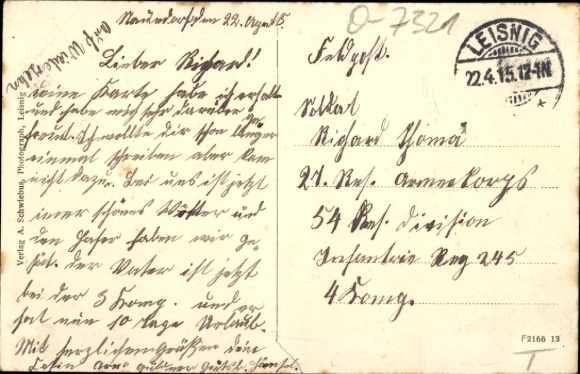 Naundorf den 22. April 15.
Lieber Richard!
Deine Karte habe ich erhalten
und habe mich sehr darüber ge
freut. Ich wollte dir schon länger
einmal schreiben aber kam
nicht dazu. Bei uns ist jetzt
imer schönes Wetter und
den Hafer haben wir ge
sät. der Vater ist jetzt
bei der 3 Komp. und er
hat nun 10 tage Urlaub.
Mit herzlichen Grüßen dein
Auf Wiedersehn
Verlag A. Schwiefus, Photograph, Leisnig
O-7321
LEISNIG
22.4.15.12-1N
*
Feldpost.
Soldat
Richard Thoma
27. Res. Armeekorps
54 Res. Division
Infantrie Reg 245
4 Komp.
F2166 13
T